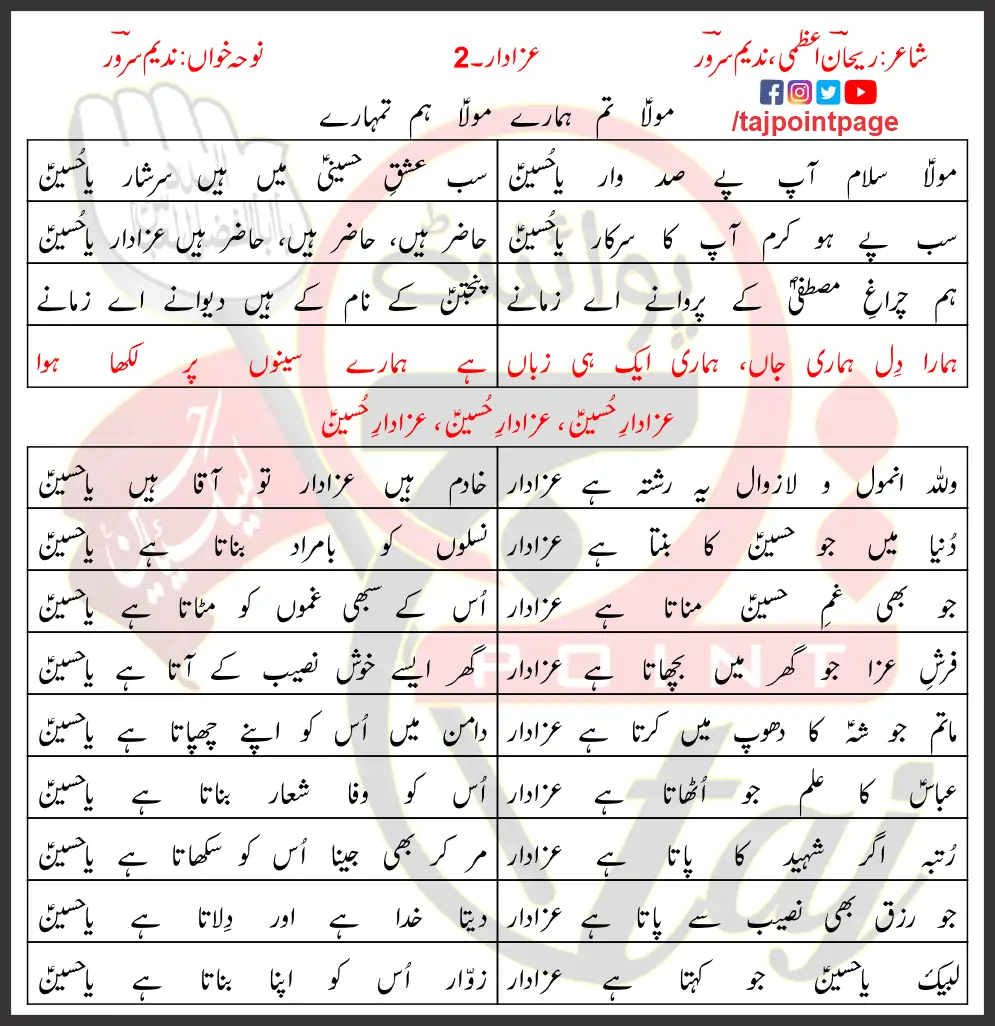 شاعر: ریحانؔ اعظمی، ندیم سرورؔ عزادار۔2 نوحہ خواں: ندیم سرورؔ
مولاؑ تم ہمارے مولاؑ ہم تمہارے
/tajpointpage
مولاؑ سلام آپ پے صد وار یاحُسینؑ سب عشقِ حسینیؑ میں ہیں سرشار یاحُسینؑ
سب پے ہو کرم آپ کا سرکار یاحُسینؑ حاضر ہیں، حاضر ہیں، حاضر ہیں عزادار یاحُسینؑ
ہم چراغِ مصطفیٰؐ کے پروانے اے زمانے پنجتنؑ کے نام کے ہیں دیوانے اے زمانے
ہمارا دِل ہماری جاں، ہماری ایک ہی زباں ہے ہمارے سینوں پر لکھا ہوا
عزادارِ حُسینؑ، عزادارِ حُسینؑ، عزادارِ حُسینؑ
وللہ انمول و لازوال یہ رشتہ ہے عزادار خادم ہیں عزادار تو آقا ہیں یاحسینؑ
دُنیا میں جو حسینؑ کا بنتا ہے عزادار نسلوں کو بامراد بناتا ہے یاحسینؑ
جو بھی غمِ حسینؑ مناتا ہے عزادار اُس کے سبھی غموں کو مٹاتا ہے یاحسینؑ
فرشِ عزا جو گھر میں بچھاتا ہے عزادار گھر ایسے خوش نصیب کے آتا ہے یاحسینؑ
ماتم جو شہؑ کا دھوپ میں کرتا ہے عزادار دامن میں اُس کو اپنے چھپاتا ہے یاحسینؑ
عباسؑ کا علم جو اُٹھاتا ہے عزادار اُس کو وفا شعار بناتا ہے یاحسینؑ
رُتبہ اگر شہید کا پاتا ہے عزادار مر کر بھی جینا اُس کو سکھاتا ہے یاحسینؑ
جو رزق بھی نصیب سے پاتا ہے عزادار دیتا خدا ہے اور دِلاتا ہے یاحسینؑ
لبیک یاحسینؑ جو کہتا ہے عزادار زوّار اُس کو اپنا بناتا ہے یاحسینؑ
پوائنٹ
POINT
taj